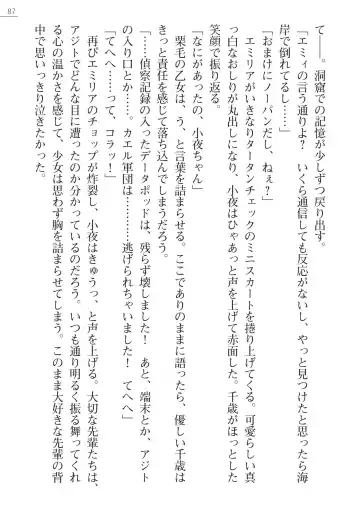 87
て――。洞窟での記憶が少しずつ戻り出す。
「エミィの言う通りよ？　いくら通信しても反応がないし、やっと見つけたと思ったら海
岸で倒れてるし……」
「おまけにノーパンだし、ねぇ？」
　エミリアがいきなりタータンチェックのミニスカートを捲り上げてくる。可愛らしい真
っ白なおしりが丸出しになり、小夜はひゃあっと声を上げて赤面した。千歳がほっとした
笑顔で振り返る。
「なにがあったの、小夜ちゃん」
　栗毛の乙女は、う、と言葉を詰まらせる。ここでありのままに語ったら、優しい千歳は
きっと責任を感じて落ち込んでしまうだろう。
「……偵察記録の入ったデータポッドは、残らず壊しました！　あと、端末とか、アジト
の入り口とか……。カエル軍団は………逃げられちゃいました！　てへへ」
「てへへ……って、コラッ！」
　再びエミリアのチョップが炸裂し、小夜はきゅうっ、と声を上げる。大切な先輩たちは、
アジトでどんな目に遭ったのか十分に察しているのだろう。いつも通り明るく振る舞ってくれ
る心の温かさを感じて、少女は思わず胸を詰まらせてしまう。このまま大好きな先輩の背
中で思いっきり泣きたかった。